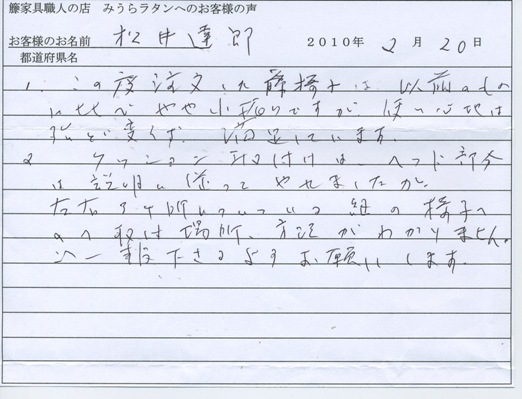 籐家具職人の店 みうらラタンへのお客様の声
お客様のお名前 松井達郎 2010年2月20日
都道府県名
1. この度注文した籐椅子は以前のもの
に比べやや小振りですが、使い心地は
殆ど変らず、満足しています
2 クッション取付けは、ヘッド部分
は説明に添ってやれましたが、
左右 ケ所についている紐の椅子へ
の 取付場所、方法がわかりません。
ご一報下さるようお願いします。